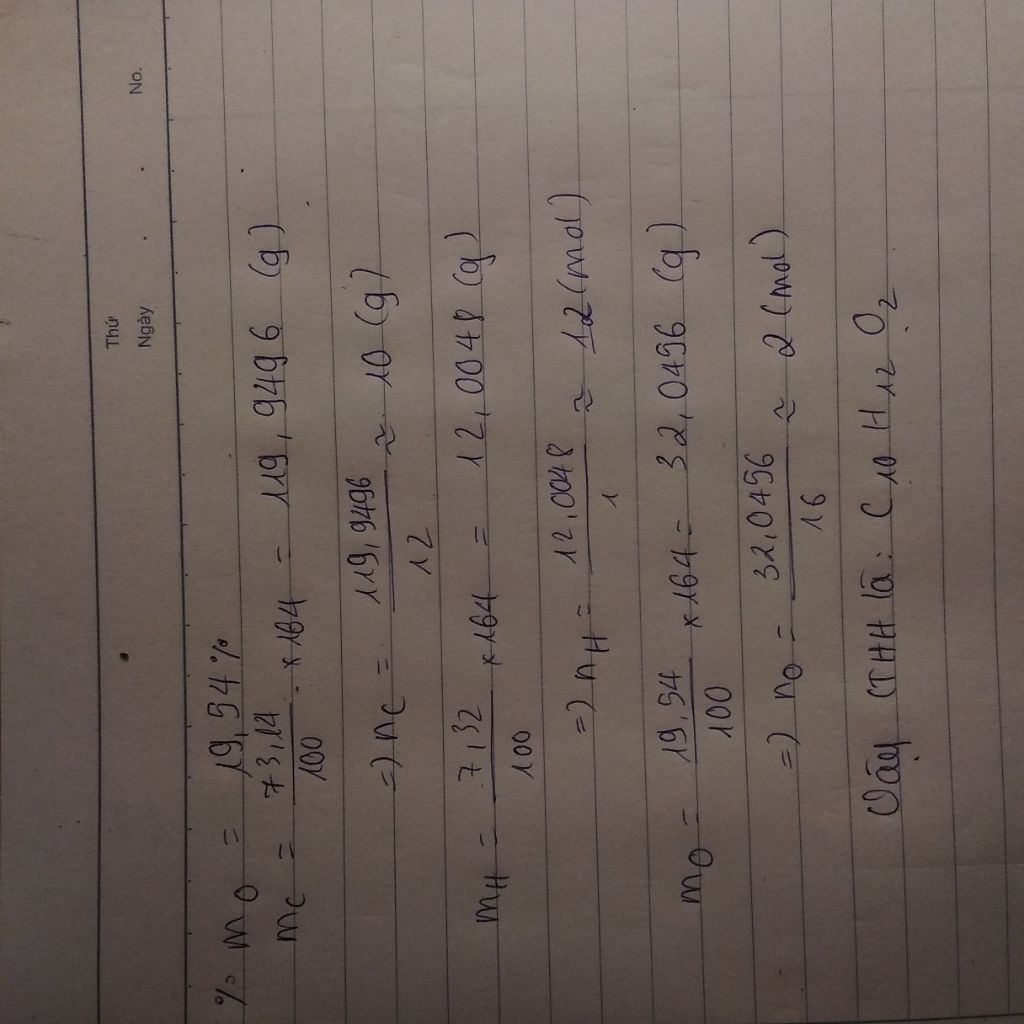 Thứ
Ngày
No.
% m O = 19,54%
mC = 73,14/100 × 164 = 119,9496 (g)
=) nC = 119,9496/12 ≈ 10 (g)
mH = 7,32/100 × 164 = 12,0048 (g)
=) nH = 12,0048/1 ≈ 12 (mol)
mO = 19,54/100 × 164 = 32,0456 (g)
=) nO = 32,0456/16 ≈ 2 (mol)
Vậy CTHH là: C10 H12 O2